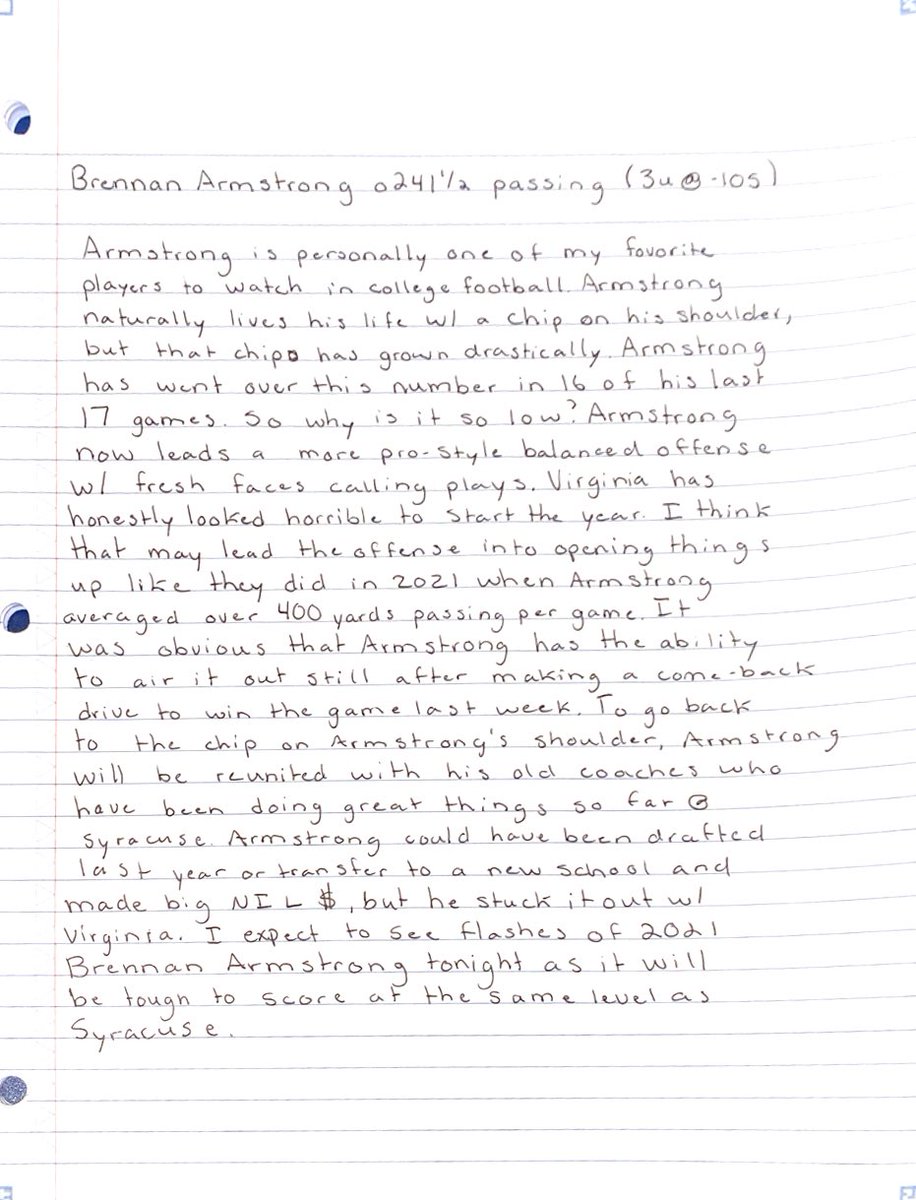 Brennan Armstrong o241 1/2 passing (3u @ -105)
Armstrong is personally one of my favorite
players to watch in college football. Armstrong
naturally lives his life w/ a chip on his shoulder,
but that chip has grown drastically. Armstrong
has went over this number in 16 of his last
17 games. So why is it so low? Armstrong
now leads a more pro-style balanced offense
w/ fresh faces calling plays. Virginia has
honestly looked horrible to start the year. I think
that may lead the offense into opening things
up like they did in 2021 when Armstrong
averaged over 400 yards passing per game. It
was obvious that Armstrong has the ability
to air it out still after making a come-back
drive to win the game last week. To go back
to the chip on Armstrong's shoulder, Armstrong
will be reunited with his old coaches who
have been doing great things so far @
Syracuse. Armstrong could have been drafted
last year or transfer to a new school and
made big NIL $, but he stuck it out w/
Virginia. I expect to see flashes of 2021
Brennan Armstrong tonight as it will
be tough to score at the same level as
Syracuse.